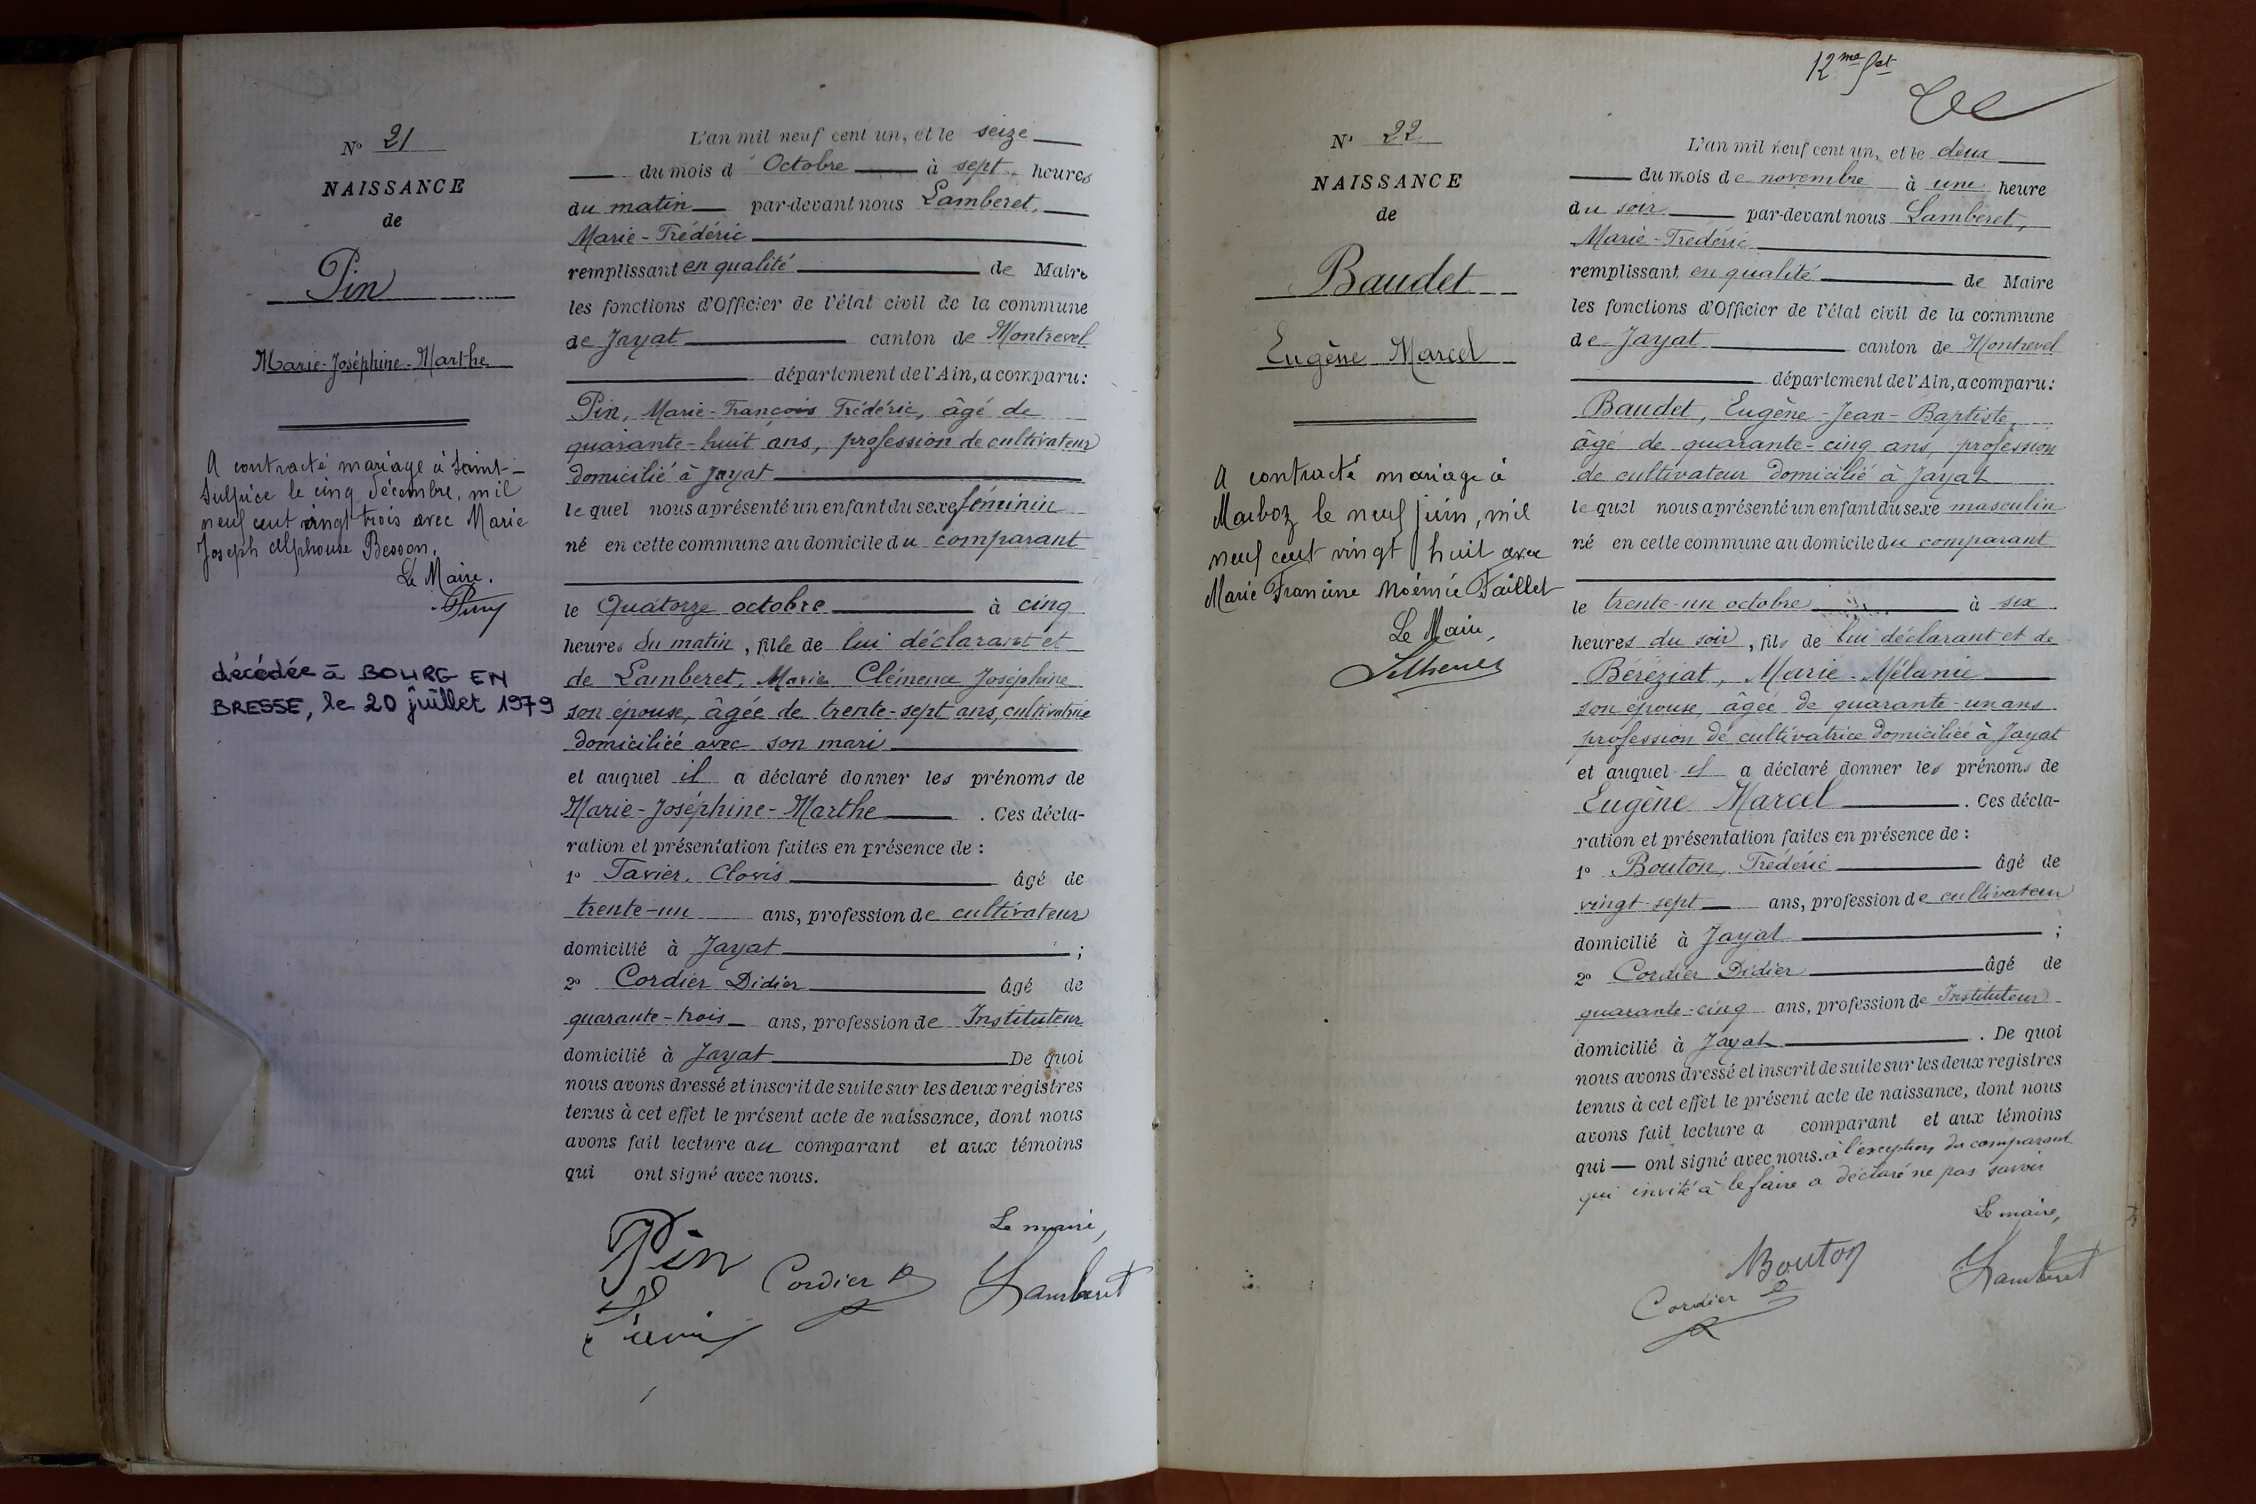 N° 21
NAISSANCE
de
Pin
Marie-Joséphine-Marthe
A contracté mariage à Saint-
Sulpice le cinq décembre, mil
neuf cent vingt trois avec Marie
Joseph Alphonse Besson.
Le Maire.
décédée à BOURG EN
BRESSE, le 20 juillet 1979
L'an mil neuf cent un, et le seize
du mois d'Octobre à sept heures
du matin par-devant nous Lamberet,
Marie-Frédéric
remplissant en qualité de Maire
les fonctions d'Officier de l'état civil de la commune
de Jayat canton de Montrevel
département de l'Ain, a comparu:
Pin, Marie-François Frédéric, âgé de
quarante-huit ans, profession de cultivateur
domicilié à Jayat
lequel nous a présenté un enfant du sexe féminin
né en cette commune au domicile du comparant
le Quatorze octobre à cinq
heures du matin, fille de lui déclarant et
de Lamberet, Marie Clémence Joséphine
son épouse, âgée de trente-sept ans, cultivatrice
domiciliée avec son mari
et auquel il a déclaré donner les prénoms de
Marie-Joséphine-Marthe. Ces décla-
ration et présentation faites en présence de :
1° Favier, Clovis âgé de
trente-un ans, profession de cultivateur
domicilié à Jayat ;
2° Cordier Didier âgé de
quarante-trois ans, profession de Instituteur
domicilié à Jayat De quoi
nous avons dressé et inscrit de suite sur les deux registres
tenus à cet effet le présent acte de naissance, dont nous
avons fait lecture au comparant et aux témoins
qui ont signé avec nous.
Le maire,
Pin
Cordier D
Lamberet
12me fet
N° 22
NAISSANCE
de
Baudet
Eugène Marcel
A contracté mariage à
Marboz le neuf juin, mil
neuf cent vingt huit avec
Marie Francine Noémie Faillet
Le Maire,
L'an mil neuf cent un, et le deux
du mois de novembre à une heure
du soir par-devant nous Lamberet,
Marie-Frédéric
remplissant en qualité de Maire
les fonctions d'Officier de l'état civil de la commune
de Jayat canton de Montrevel
département de l'Ain, a comparu:
Baudet, Eugène-Jean-Baptiste,
âgé de quarante-cinq ans, profession
de cultivateur domicilié à Jayat
lequel nous a présenté un enfant du sexe masculin
né en cette commune au domicile du comparant
le trente-un octobre à six
heures du soir, fils de lui déclarant et de
Béréziat, Marie-Mélanie
son épouse, âgée de quarante-un ans
profession de cultivatrice domiciliée à Jayat
et auquel il a déclaré donner les prénoms de
Eugène Marcel. Ces décla-
ration et présentation faites en présence de :
1° Bouton, Frédéric âgé de
vingt-sept ans, profession de cultivateur
domicilié à Jayat ;
2° Cordier Didier âgé de
quarante-cinq ans, profession de Instituteur
domicilié à Jayat. De quoi
nous avons dressé et inscrit de suite sur les deux registres
tenus à cet effet le présent acte de naissance, dont nous
avons fait lecture a comparant et aux témoins
qui — ont signé avec nous. à l'exception du comparant
qui invité à le faire a déclaré ne pas savoir
Le maire,
Bouton
Cordier D
Lamberet